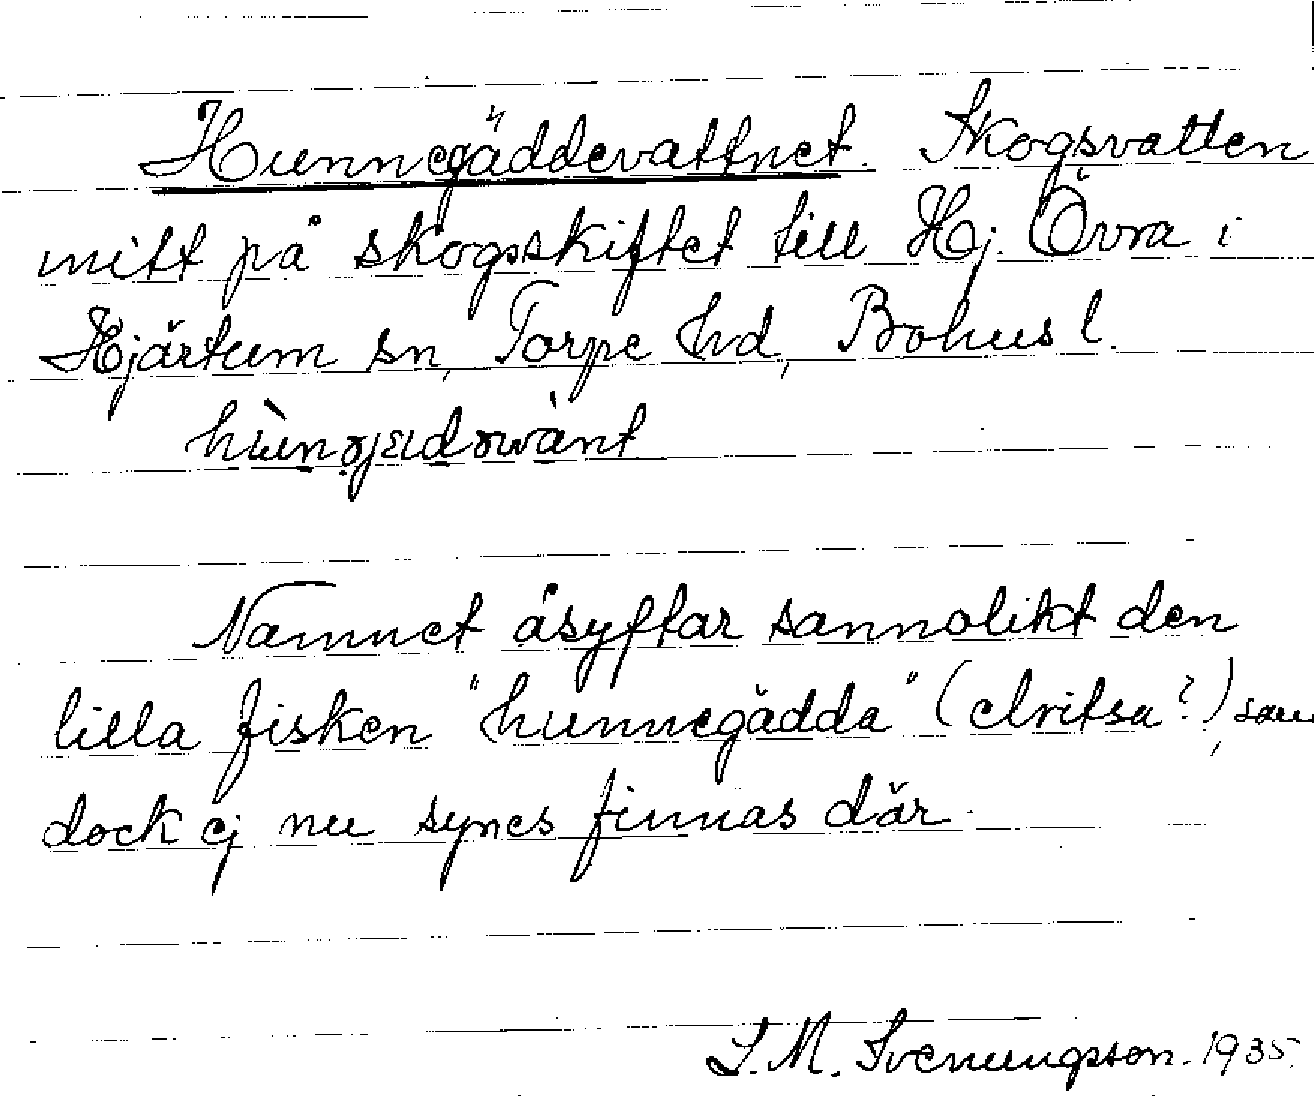 Hunnegäddevattnet. Skogsvatten
mitt på skogsskiftet till Hj. Övra i
Hjärtum sn, Torpe hd, Bohus l.
Namnet åsyftar sannolikt den
lilla fisken "hunnegädda" (elritsa?), som
dock ej nu synes finnas där.
S. M. Svenungsson. 1935.